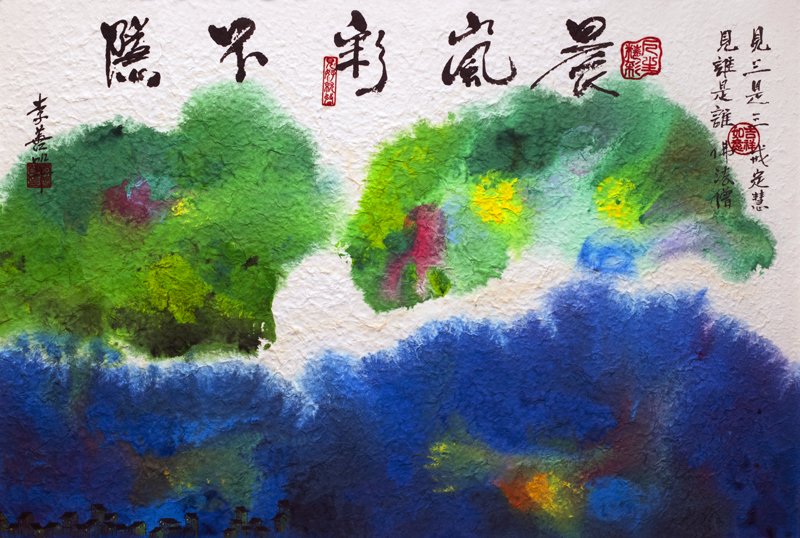 見三是三 戒定慧
見誰是誰 佛法僧
吉祥如意
晨嵐彩不隱
李善